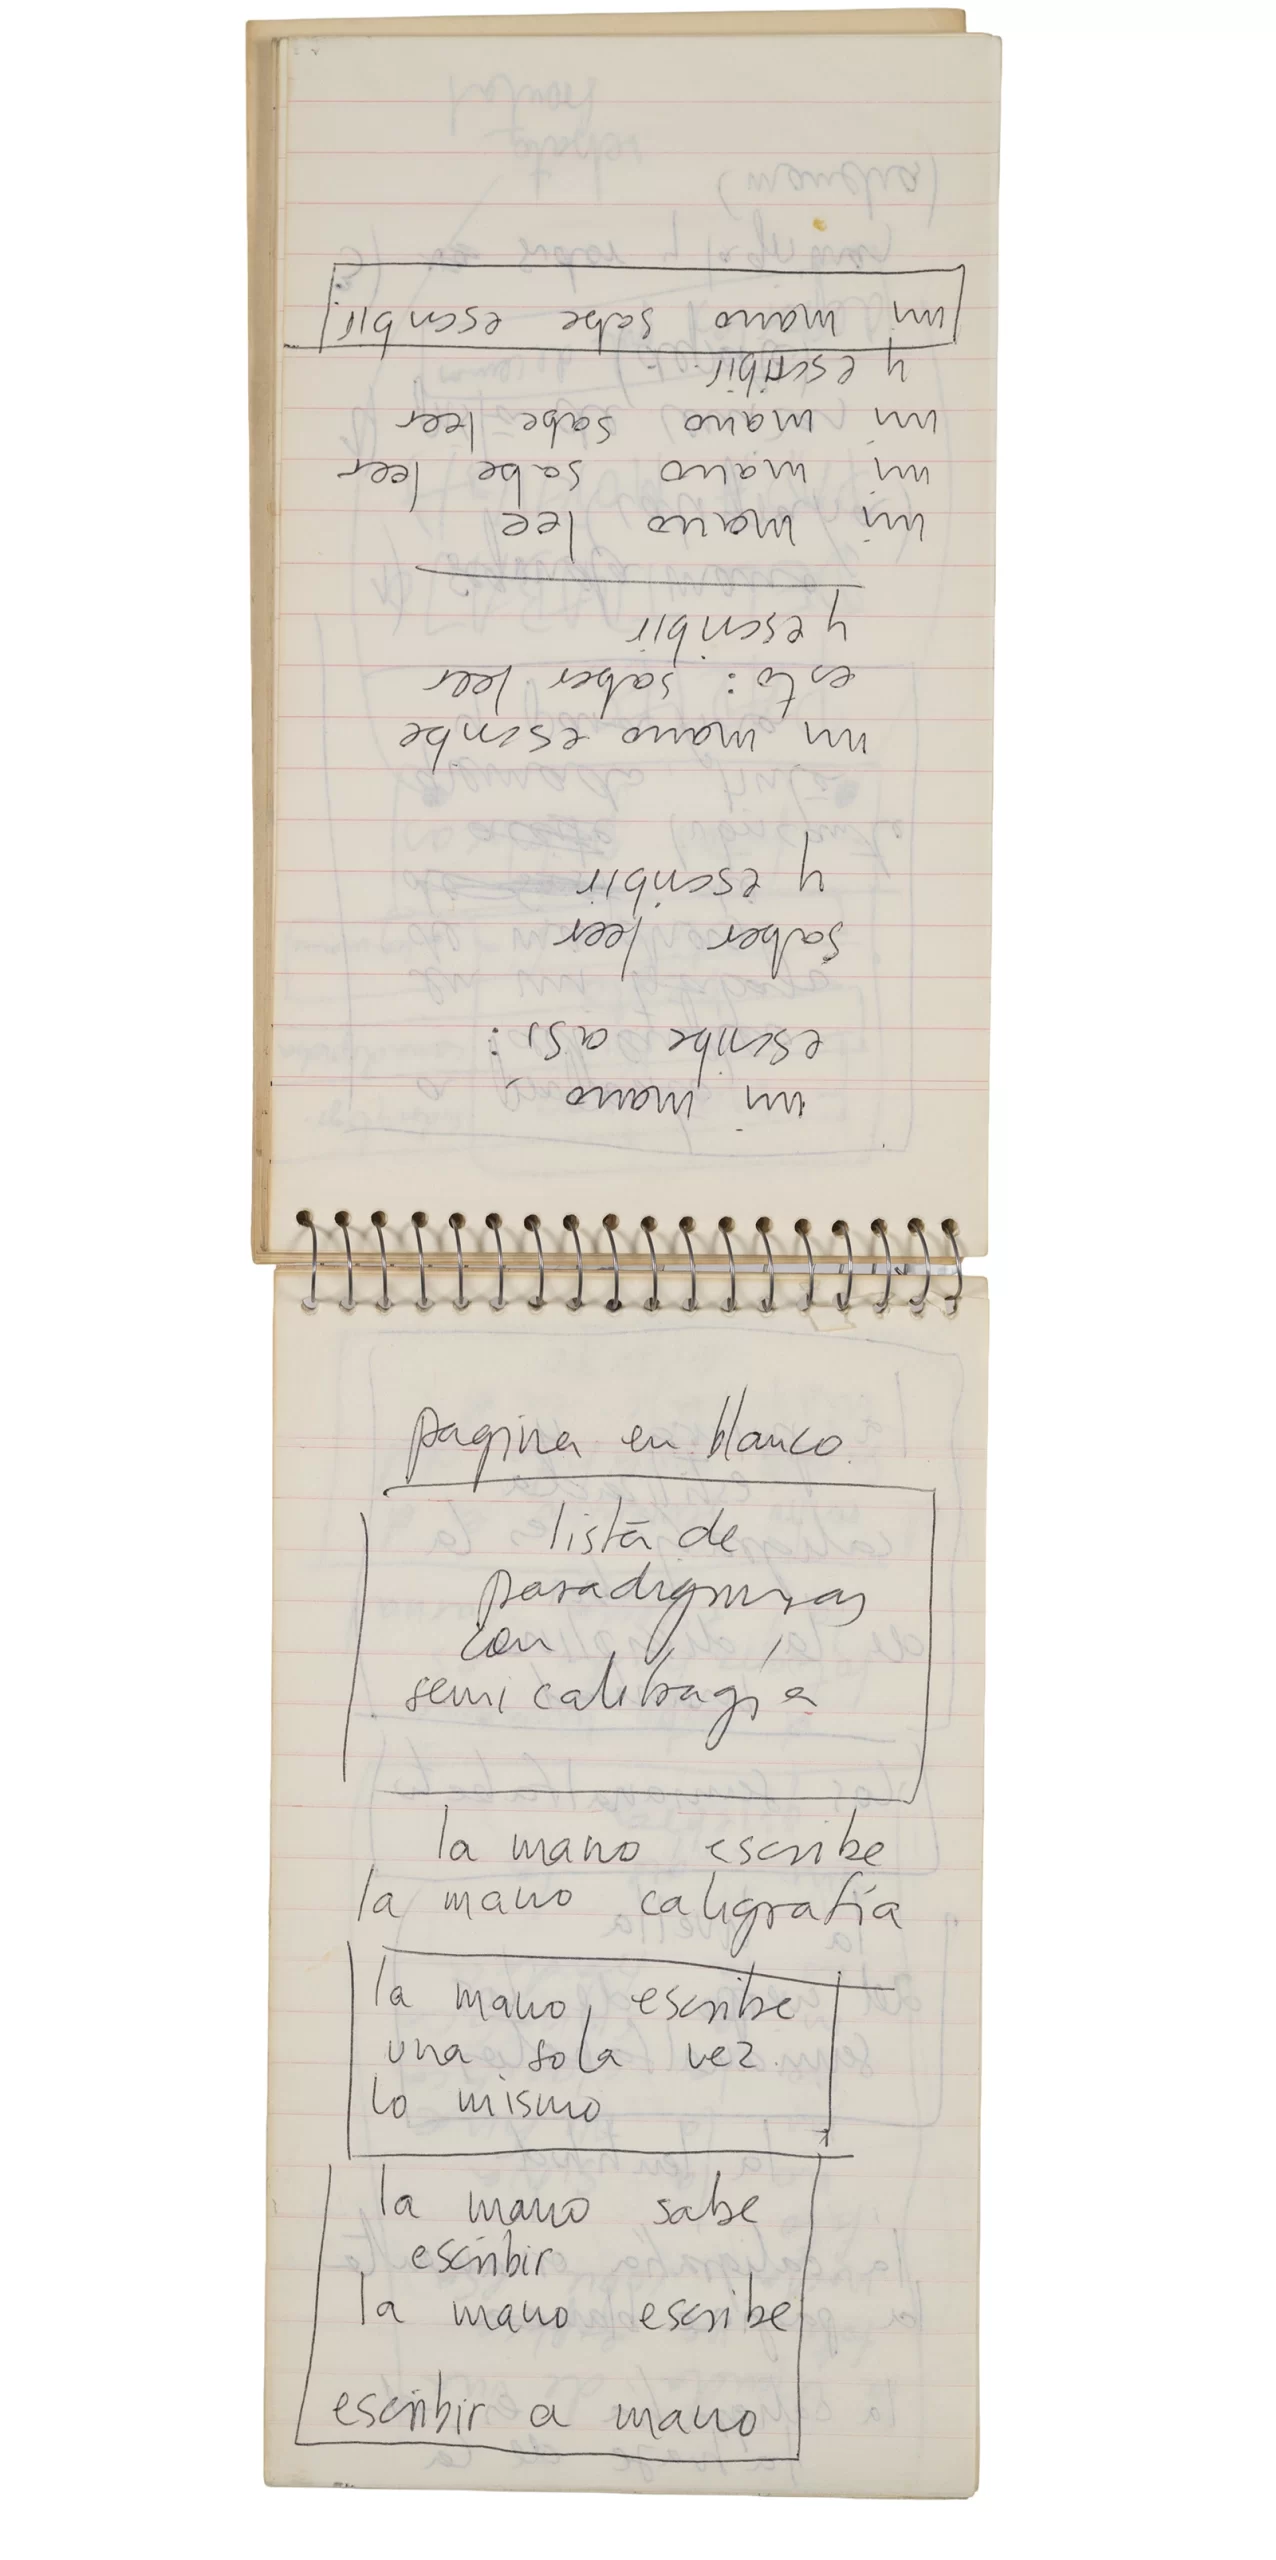 mi mano
escribe así:
saber leer
y escribir
mi mano escribe
esto: saber leer
y escribir
mi mano lee
mi mano sabe leer
mi mano sabe leer
y escribir
mi mano sabe escribir
pagina en blanco
lista de
paradigmas
con
la mano escribe
la mano caligrafía
la mano escribe
una sola vez
lo mismo
la mano sabe
escribir
la mano escribe
escribir a mano